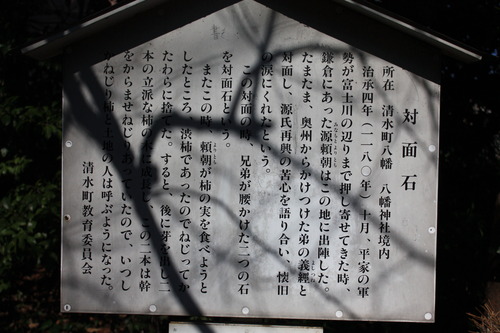 対面石
所在　清水町八幡　八幡神社境内
治承四年（一一八〇年）十月、平家の軍
勢が富士川の辺りまで押し寄せてきた時、
鎌倉にあった源頼朝はこの地に出陣した。
たまたま、奥州からかけつけた弟の義經と
対面し、源氏再興の苦心を語り合い、懐旧
の涙にくれたという。
この対面の時、兄弟が腰かけた二つの石
を対面石という。
またこの時、頼朝が柿の実を食べようと
したところ、渋柿であったのでねじってか
たわらに捨てた。すると、後に芽を出し二
本の立派な柿の木に成長し、この二本は幹
をからませねじりあっていたので、いつし
かねじり柿と土地の人は呼ぶようになった。
清水町教育委員会